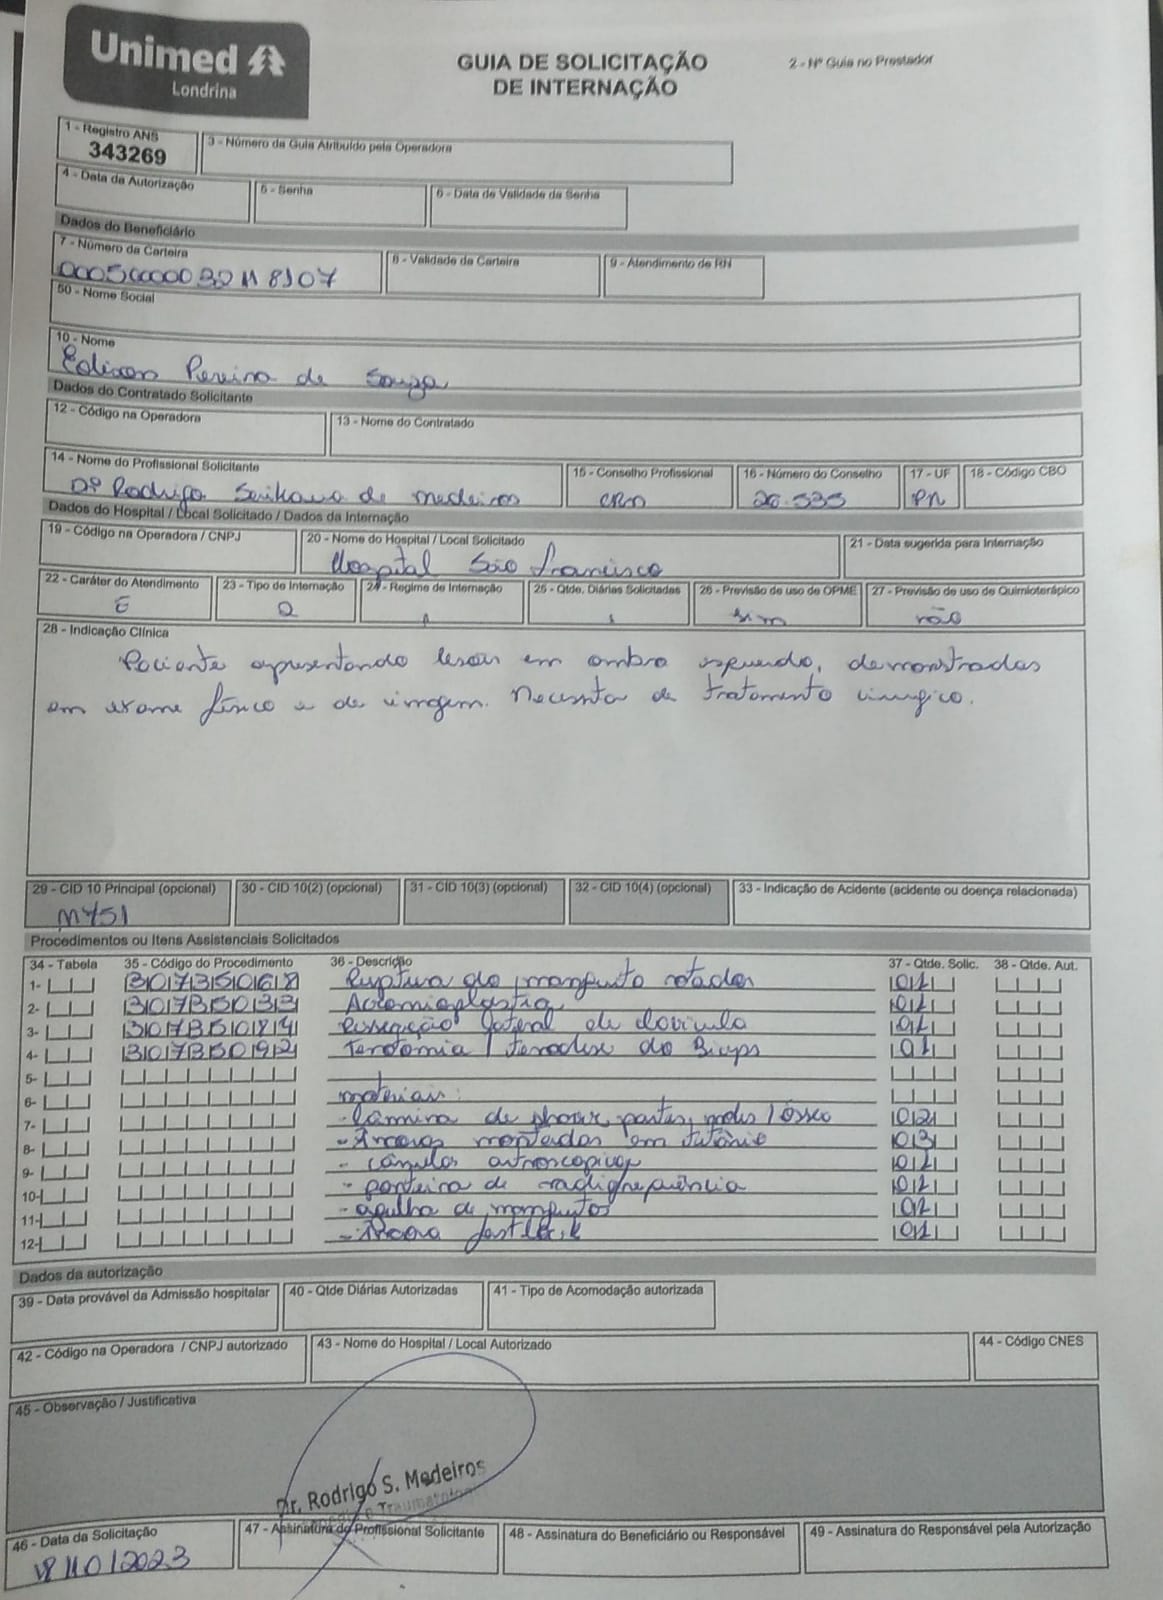 Unimed
Londrina
GUIA DE SOLICITAÇÃO
DE INTERNAÇÃO
2 - Nº Guia no Prestador
1 - Registro ANS
343269
3 - Número da Guia Atribuído pela Operadora
4 - Data da Autorização
5 - Senha
6 - Data de Validade da Senha
Dados do Beneficiário
7 - Número da Carteira
8 - Validade da Carteira
9 - Atendimento de RN
50 - Nome Social
10 - Nome
Pereira de Souza
Dados do Contratado Solicitante
12 - Código na Operadora
13 - Nome do Contratado
14 - Nome do Profissional Solicitante
Drº Rodrigo de Medeiros
15 - Conselho Profissional
CRM
16 - Número do Conselho
26.535
17 - UF
PR
18 - Código CBO
Dados do Hospital / Local Solicitado / Dados da Internação
19 - Código na Operadora / CNPJ
20 - Nome do Hospital / Local Solicitado
Hospital São Francisco
21 - Data sugerida para Internação
22 - Caráter do Atendimento
E
23 - Tipo de Internação
2
24 - Regime de Internação
1
25 - Qtde. Diárias Solicitadas
1
26 - Previsão de uso de OPME
sim
27 - Previsão de uso de Quimioterápico
não
28 - Indicação Clínica
Paciente apresentando lesões em ombro esquerdo, demonstradas
em exame físico e de imagem. Necessita de tratamento cirurgico.
29 - CID 10 Principal (opcional)
M751
30 - CID 10(2) (opcional)
31 - CID 10(3) (opcional)
32 - CID 10(4) (opcional)
33 - Indicação de Acidente (acidente ou doença relacionada)
Procedimentos ou Itens Assistenciais Solicitados
34 - Tabela 35 - Código do Procedimento 36 - Descrição 37 - Qtde. Solic. 38 - Qtde. Aut.
1- Ruptura do manguito rotador 01
2- 30735033 Acromioplastia 01
3- Ressecção lateral de clavicula 01
4- 30735092 Tenotomia / tenodese do Biceps 01
5-
6- materiais:
7- - Lâmina de shaver partes moles / ósseo 02
8- - Âncoras montadas em titânio 03
9- - cânulas artroscopica 02
10- - ponteira de radiofrequência 01
11- - agulha de manguitos 01
12- - Âncora 01
Dados da autorização
39 - Data provável da Admissão hospitalar
40 - Qtde Diárias Autorizadas
41 - Tipo de Acomodação autorizada
42 - Código na Operadora / CNPJ autorizado
43 - Nome do Hospital / Local Autorizado
44 - Código CNES
45 - Observação / Justificativa
Dr. Rodrigo S. Medeiros
46 - Data da Solicitação
18/10/2023
47 - Assinatura do Profissional Solicitante
48 - Assinatura do Beneficiário ou Responsável
49 - Assinatura do Responsável pela Autorização